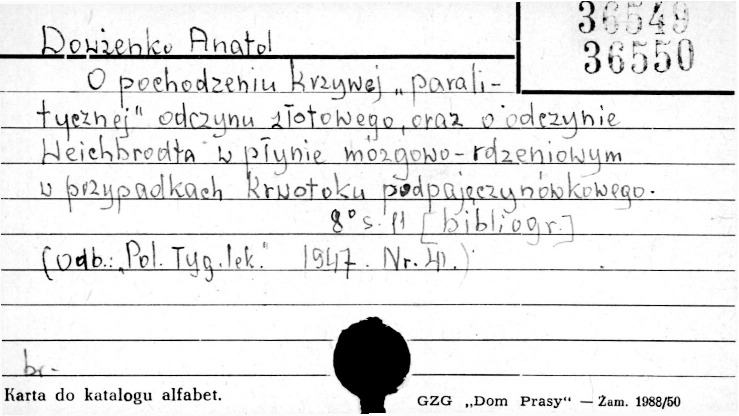 36549
36550
Dowżenko Anatol
O pochodzeniu krzywej „parali-
tycznej" odczynu złotowego, oraz o odczynie
Weichbrodta w płynie mózgowo-rdzeniowym
w przypadkach krwotoku podpajęczynówkowego.
8° s. 11 [bibliogr.]
(Odb.: „Pol. Tyg. lek." 1947. Nr. 41.)
br.
Karta do katalogu alfabet.
GZG „Dom Prasy" — Żam. 1988/50